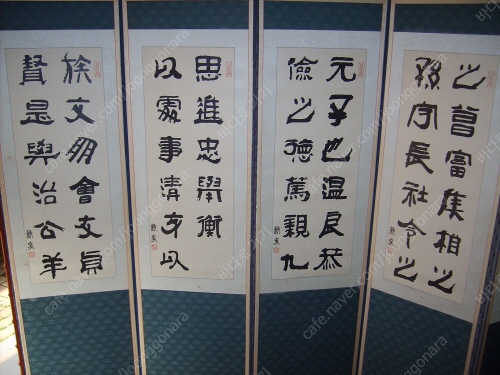 之曾富相之
孫守長社令之
元子也温良恭
儉之德篤親九
思進忠舉衡
以處事清身以
族交朋會友貞
賢是與治公羊
cafe.naver.com/joonggonara